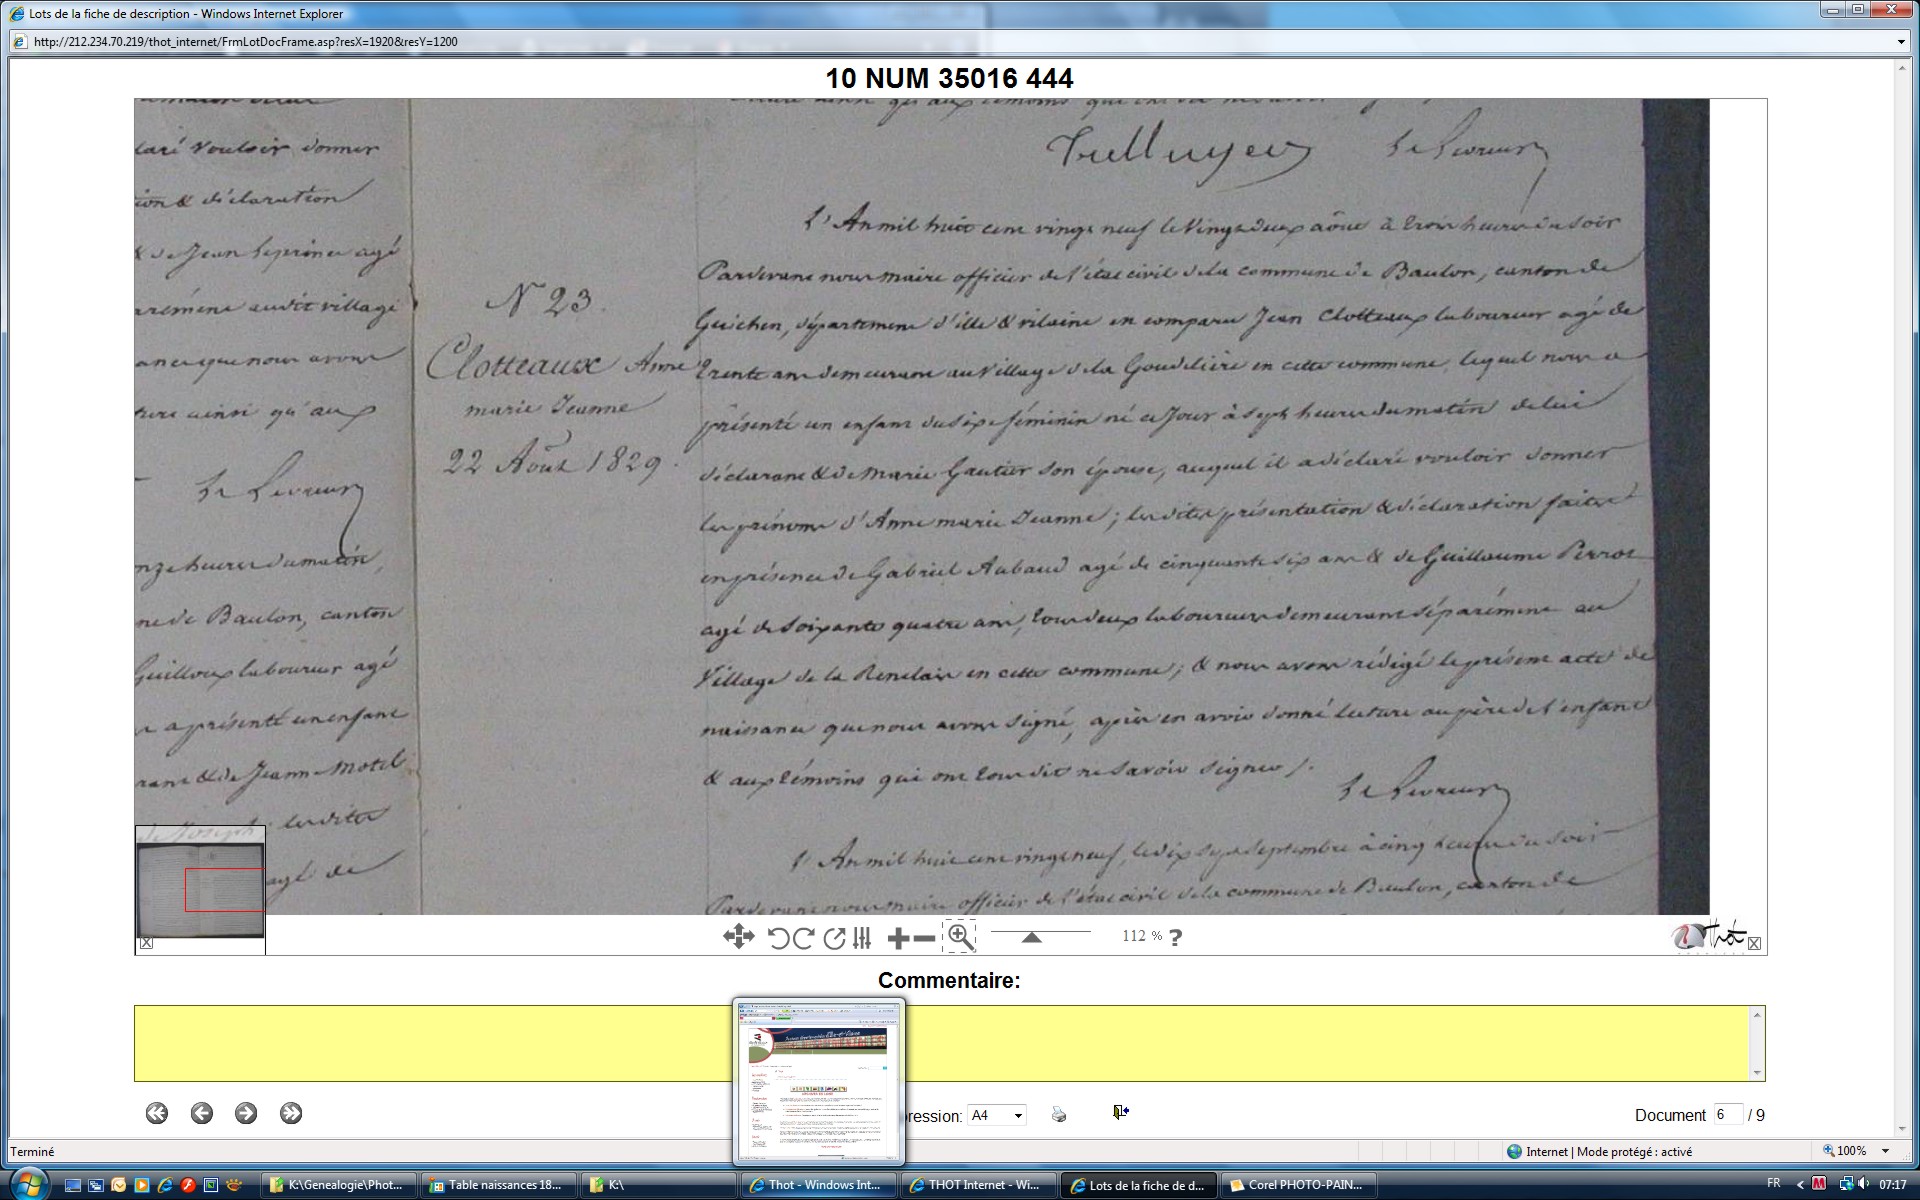 Lots de la fiche de description - Windows Internet Explorer
http://212.234.70.219/thot_internet/FrmLotDocFrame.asp?resX=1920&resY=1200
10 NUM 35016 444
laré vouloir donner
tion & déclaration
& de Jean Leprince agé
rément audit village
ance que nous avons
ture ainsi qu'aux
Le Levreur
onze heures du matin,
ne de Baulon, canton
Guilloux laboureur agé
a présenté un enfant
rant & de Jeanne Motel
de Joseph; les dites
agé de
N 23.
Clotteaux Anne
marie Jeanne
22 Août 1829.
Le Levreur
L'An mil huit cent vingt neuf le vingt deux aôut à trois heures du soir
Pardevant nous maire officier de l'état civil de la commune de Baulon, canton de
Guichen, département d'ille & vilaine en comparu Jean Clotteaux laboureur agé de
trente ans demeurant au village de la Goudelière en cette commune, lequel nous a
présenté un enfant du sixe féminin né ce jour à sept heures du matin de lui
déclarant & de Marie Gautier son épouse, auquel il a déclaré vouloir donner
les prénoms d'Anne marie Jeanne; les dites présentation & déclaration faites
en présence de Gabriel Aubaud agé de cinquante six ans & de Guillaume Perrot
agé de soixante quatre ans, tous deux laboureurs demeurant séparément au
village de la en cette commune; & nous avons rédigé le présent acte de
naissance que nous avons signé, après en avoir donné lecture au père de l'enfant
& aux témoins qui ont tous dit ne savoir signer /.
Le Levreur
L'An mil huit cent vingt neuf, le dix sept septembre à cinq heures du soir
Pardevant nous maire officier de l'état civil de la commune de Baulon, canton de
112 % ?
Thot
Commentaire:
pression: A4
Document 6 / 9
Terminé
Internet | Mode protégé : activé
100%
K:\Genealogie\Phot...
Table naissances 18...
K:\
Thot - Windows Int...
THOT Internet - Wi...
Lots de la fiche de d...
Corel PHOTO-PAIN...
FR
07:17